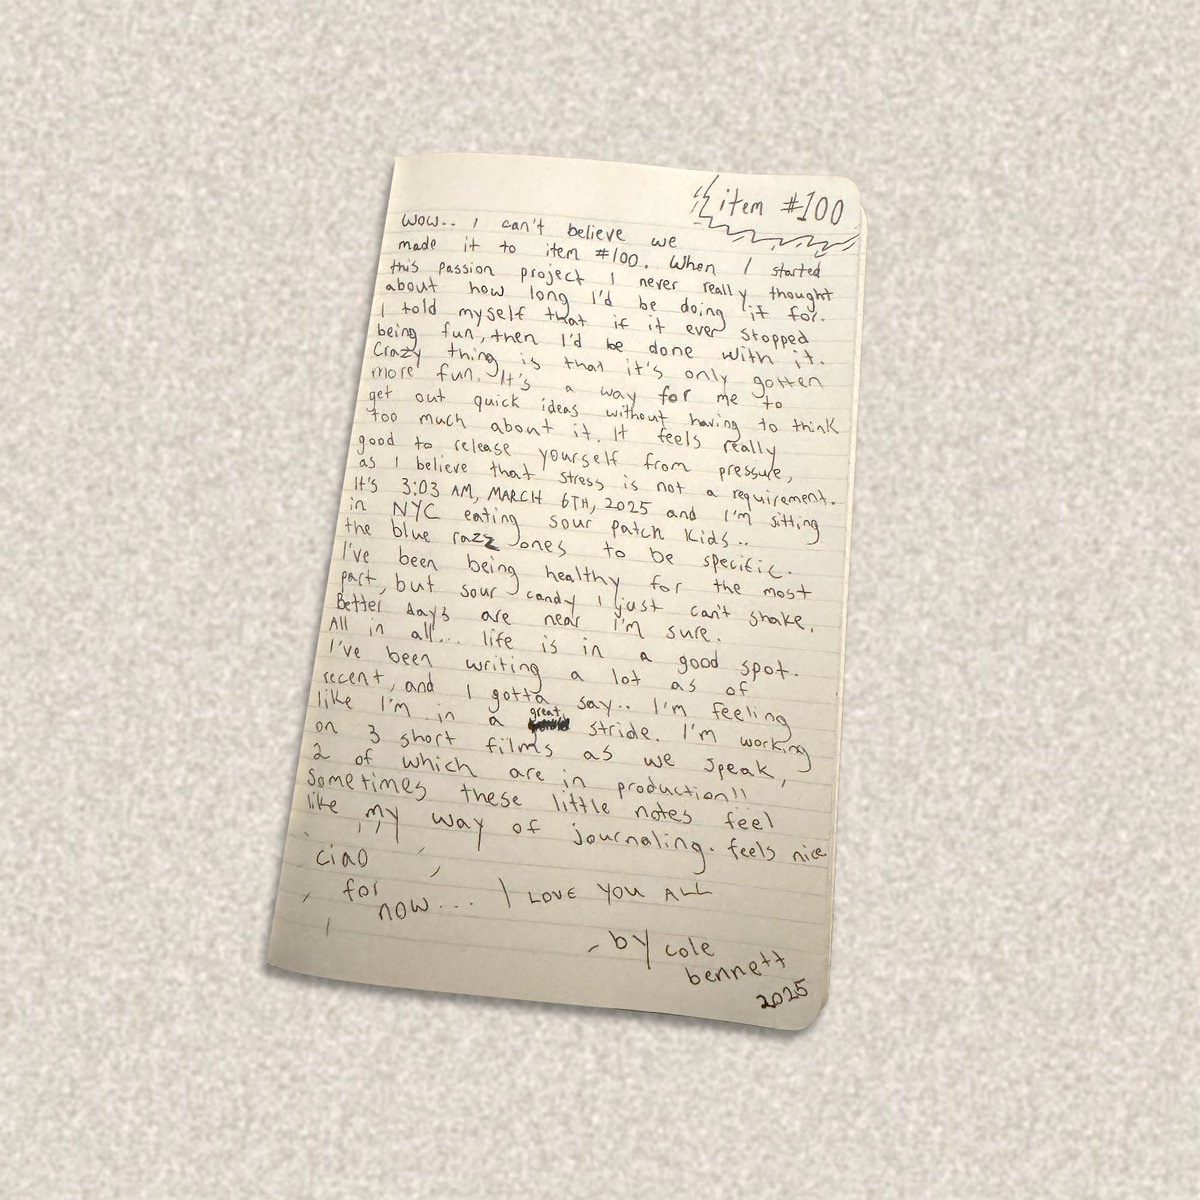 item #100
wow.. I can't believe we
made it to item #100. When I started
this passion project I never really thought
about how long I'd be doing it for.
I told myself that if it ever stopped
being fun, then I'd be done with it.
Crazy thing is that it's only gotten
more fun. It's a way for me to
get out quick ideas without having to think
too much about it. It feels really
good to release yourself from pressure,
as I believe that stress is not a requirement.
It's 3:03 AM, MARCH 6TH, 2025 and I'm sitting
in NYC eating sour patch kids..
the blue razz ones to be specific.
I've been being healthy for the most
part, but sour candy I just can't shake.
Better days are near I'm sure.
All in all... life is in a good spot.
I've been writing a lot as of
recent, and I gotta say.. I'm feeling
like I'm in a great stride. I'm working
on 3 short films as we speak,
2 of which are in production!!
sometimes these little notes feel
like my way of journaling. feels nice
ciao
for
now... I LOVE YOU ALL
- by cole
bennett
2025